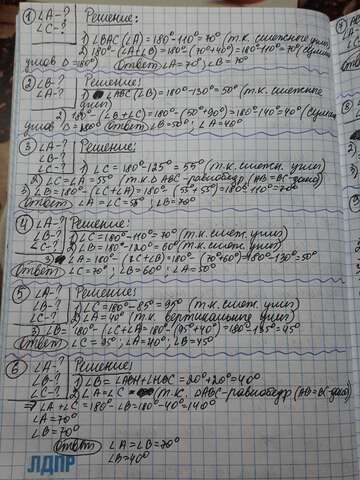 ① ∠A-? Решение:
∠C-?
1) ∠BAC (∠A) = 180°-110° = 70° (т.к. смежные угл)
2) 180°-(∠A+∠B) = 180°-(70°+40°) = 180°-110° = 70° (сумма
углов △ = 180°) Ответ ∠A = 70°; ∠B = 70°
② ∠B-? Решение:
∠A-?
1) ∠ABC (∠B) = 180°-130° = 50° (т.к. смежные
угл)
2) 180°-(∠B+∠C) = 180°-(50°+90°) = 180°-140° = 40° (сумма
углов △ = 180°) Ответ ∠B = 50°; ∠A = 40°
③ ∠A-? Решение:
∠B-?
∠C-? 1) ∠C = 180°-125° = 55° (т.к. смежн. угл)
2) ∠C = ∠A = 55° (т.к. △ABC-равнобедр (AB=BC-дано)
3) ∠B = 180°-(∠C+∠A) = 180°-(55°+55°) = 180°-110° = 70°
Ответ ∠A = ∠C = 55°; ∠B = 70°
④ ∠A-? Решение:
∠B-? 1) ∠C = 180°-110° = 70° (т.к. смеж. угл)
∠C-? 2) ∠B = 180°-120° = 60° (т.к. смеж. угл)
3) ∠A = 180°-(∠C+∠B) = 180°-(70°+60°) = 180°-130° = 50°
Ответ ∠C = 70°; ∠B = 60°; ∠A = 50°
⑤ ∠A-? Решение:
∠B-? 1) ∠C = 180°-85° = 95° (т.к. смеж. угл)
∠C-? 2) ∠A = 40° (т.к. вертикальные угл)
3) ∠B = 180°-(∠C+∠A) = 180°-(95°+40°) = 180°-135° = 45°
Ответ ∠C = 95°; ∠A = 40°; ∠B = 45°
⑥ ∠A-? Решение:
∠B-? 1) ∠B = ∠ABH+∠HBC = 20°+20° = 40°
∠C-? 2) ∠A = ∠C (т.к. △ABC-равнобедр (AB=BC-дано)
⇒ ∠A+∠C = 180°-∠B = 180°-40° = 140°
∠A = 70°
∠B = 70°
Ответ ∠A = ∠B = 70°
∠B = 40°
ЛДПР